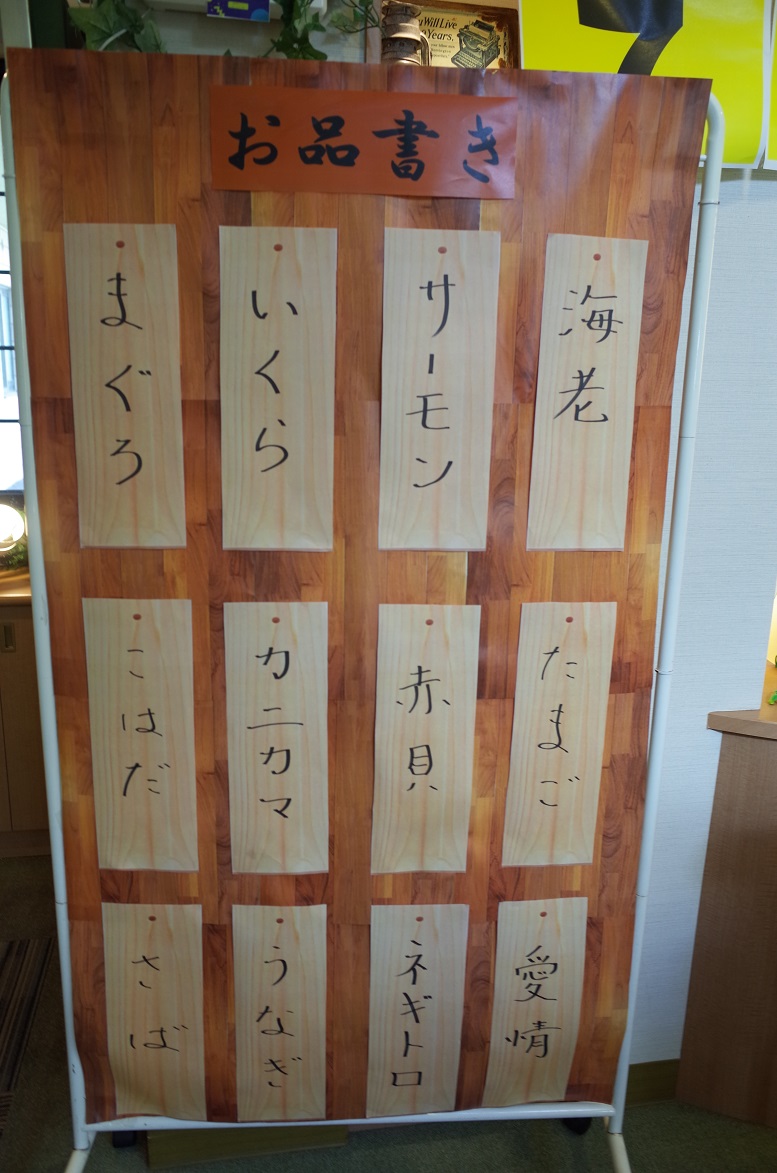 Will Live
Years.
7
お品書き
海老
サーモン
いくら
まぐろ
たまご
赤貝
カニカマ
こはだ
愛情
ネギトロ
うなぎ
さば